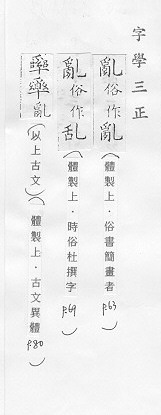 字學三正
亂俗作亂(體製上．俗書簡畫者 p.63)
亂俗作乱(體製上．時俗杜撰字 p.69)
亂(以上古文)(體製上．古文異體 p.80)